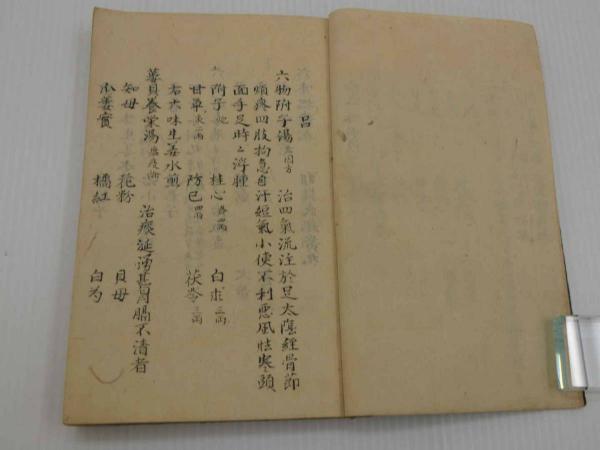 呂
六物附子湯三因方 治四氣流注於足太陰經骨節
煩疼四肢拘急自汗短氣小便不利惡風怯寒頭
面手足時々浮腫
附子 桂心 白朮三兩
甘草 防已四兩 茯苓三兩
右六味生姜水煎
蔞貝養荣湯 治痰涎湧甚胃膈不清者
知母 花粉 貝母
瓜蔞實 橘紅 白芍